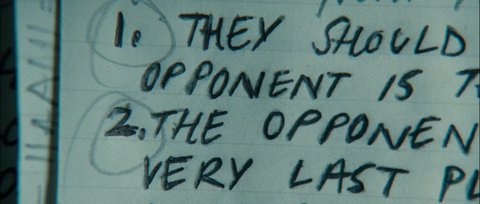 1. THEY SHOULD
OPPONENT IS
2. THE OPPONEN
VERY LAST